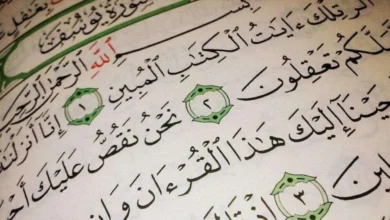 بِغَٰفِلٍ
سُورَةُ يُوسُفَ
بِسْمِ ٱللَّهِ ٱلرَّحْمَٰنِ ٱلرَّحِيمِ
الٓر تِلْكَ ءَايَٰتُ ٱلْكِتَٰبِ ٱلْمُبِينِ ١ إِنَّآ أَنزَلْنَٰ
لَّكُمْ تَعْقِلُونَ ٢ نَحْنُ نَقُصُّ عَلَيْكَ أَحْ
يْنَآ إِلَيْكَ هَٰذَا ٱلْقُرْءَانَ وَإِن
ينَ ٣ إِذْ قَالَ